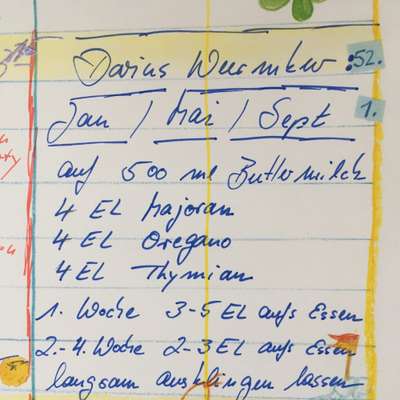 Darius Wurmkur :52.
Jan / Mai / Sept 1.
auf 500 ml Buttermilch
4 EL Majoran
4 EL Oregano
4 EL Thymian
1. Woche 3-5 EL aufs Essen
2.-4. Woche 2-3 EL aufs Essen
langsam ausklingen lassen